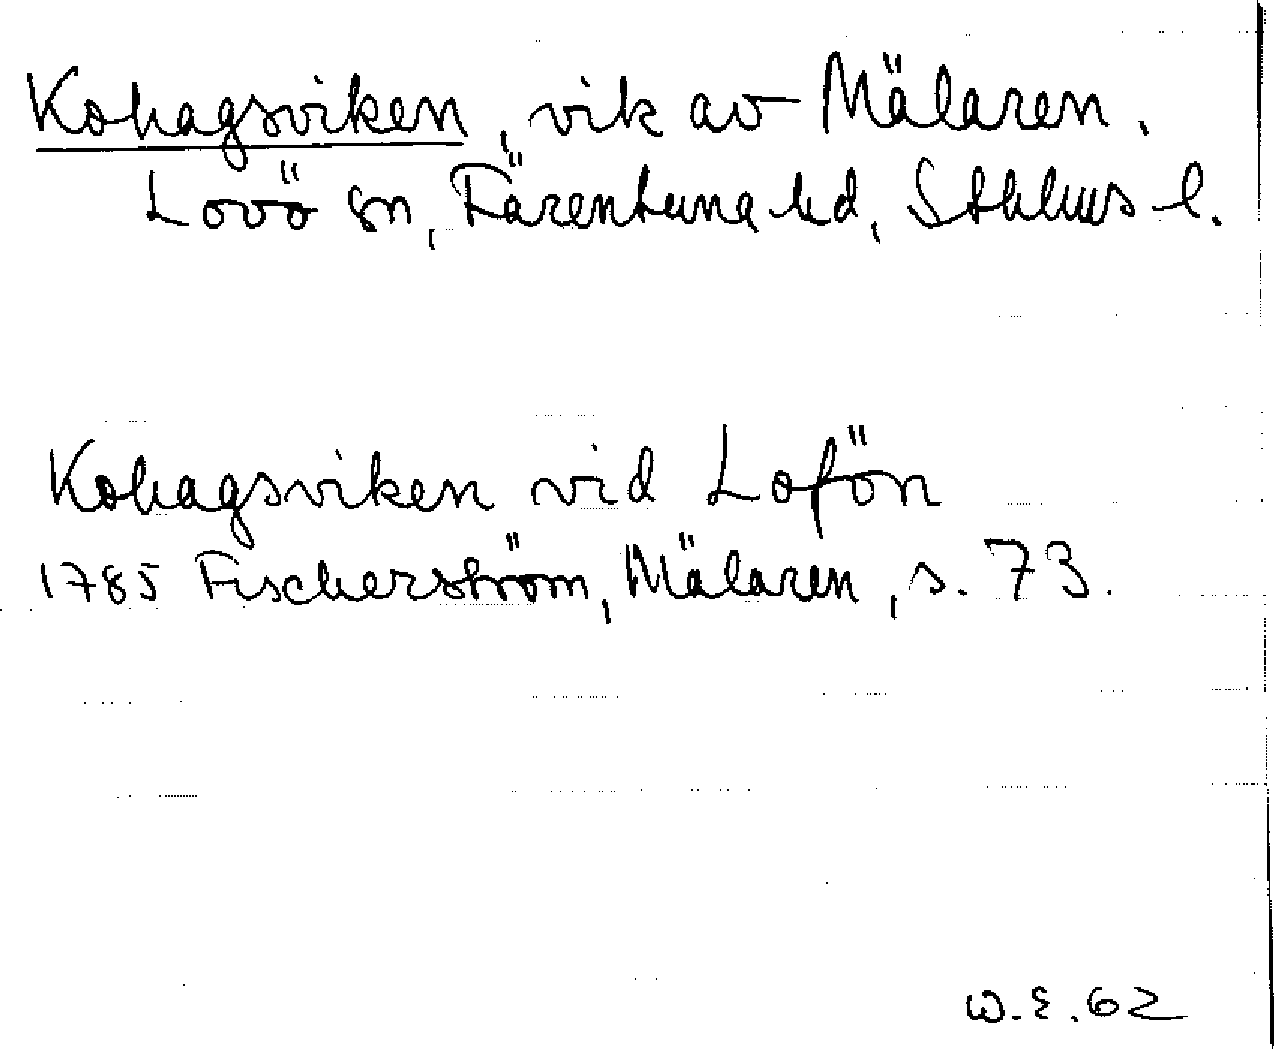 Kohagsviken, vik av Mälaren.
Lovö sn, Färentuna hd, Sthlms l.
Kohagsviken vid Lofön
1785 Fischerström, Mälaren, s. 73.
W.E.62